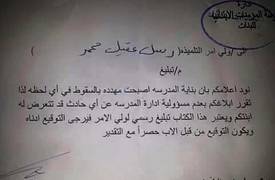 ادارة
للبنات
الى/ولي امر التلميذه/ رسل عقيل محمد
م/تبليغ
نود اعلامكم بان بناية المدرسه اصبحت مهدده بالسقوط في أي لحظه لذا
تقرر ابلاغكم بعدم مسؤولية ادارة المدرسه عن أي حادث قد تتعرض له
ابنتكم ويعتبر هذا الكتاب تبليغ رسمي لولي الامر فيرجى التوقيع ادناه
ويكون التوقيع من قبل الاب حصراً مع التقدير